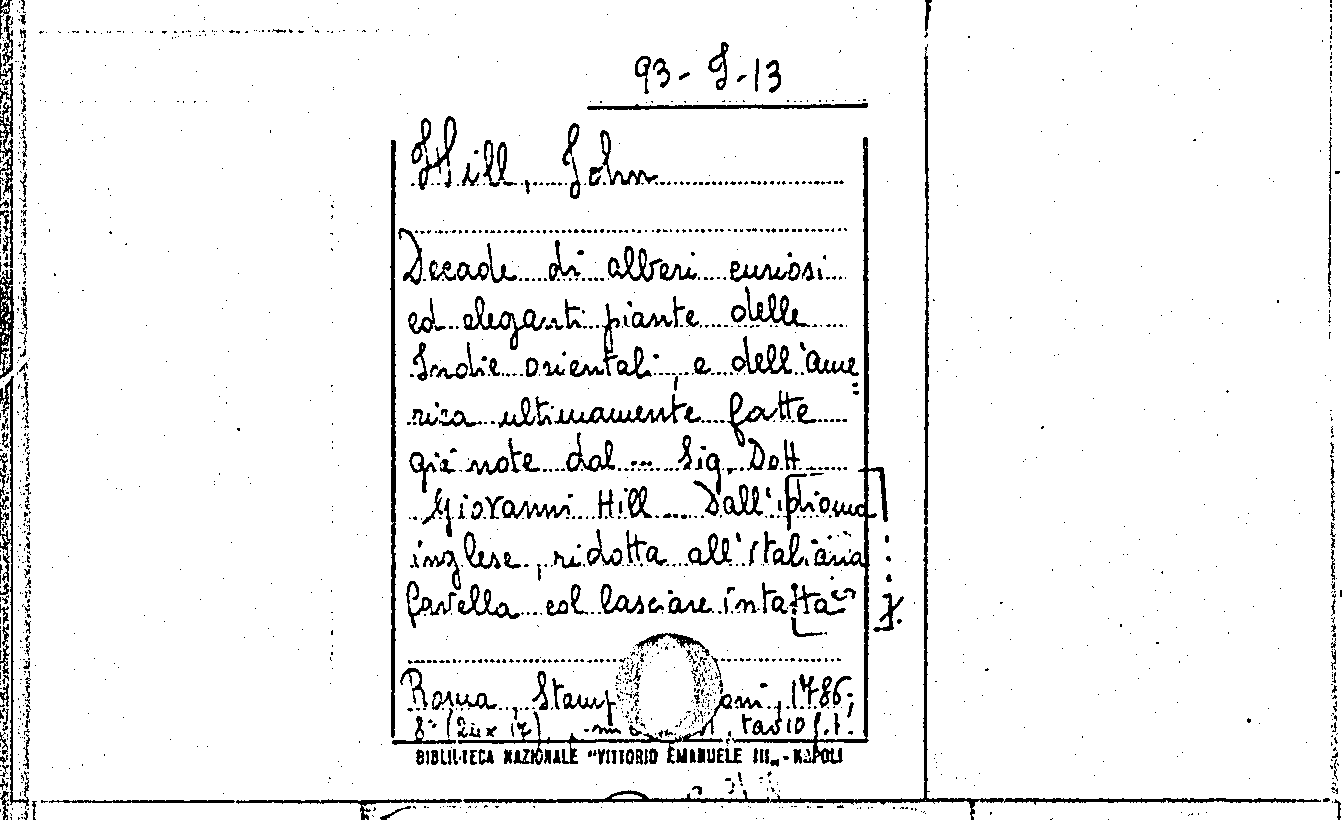 93-J-13
Hill, John
Decade di alberi curiosi
ed eleganti piante delle
Indie orientali, e dell'Ame=
rica ultimamente fatte
già note dal ... Sig. Dott
Giovanni Hill ... Dall'idioma
inglese, ridotta all'italiana
favella col lasciare intatta
Roma, Stamp ani, 1786;
8° (24 x 17), tav 10 f.t.
BIBLIOTECA NAZIONALE "VITTORIO EMANUELE III„ - NAPOLI